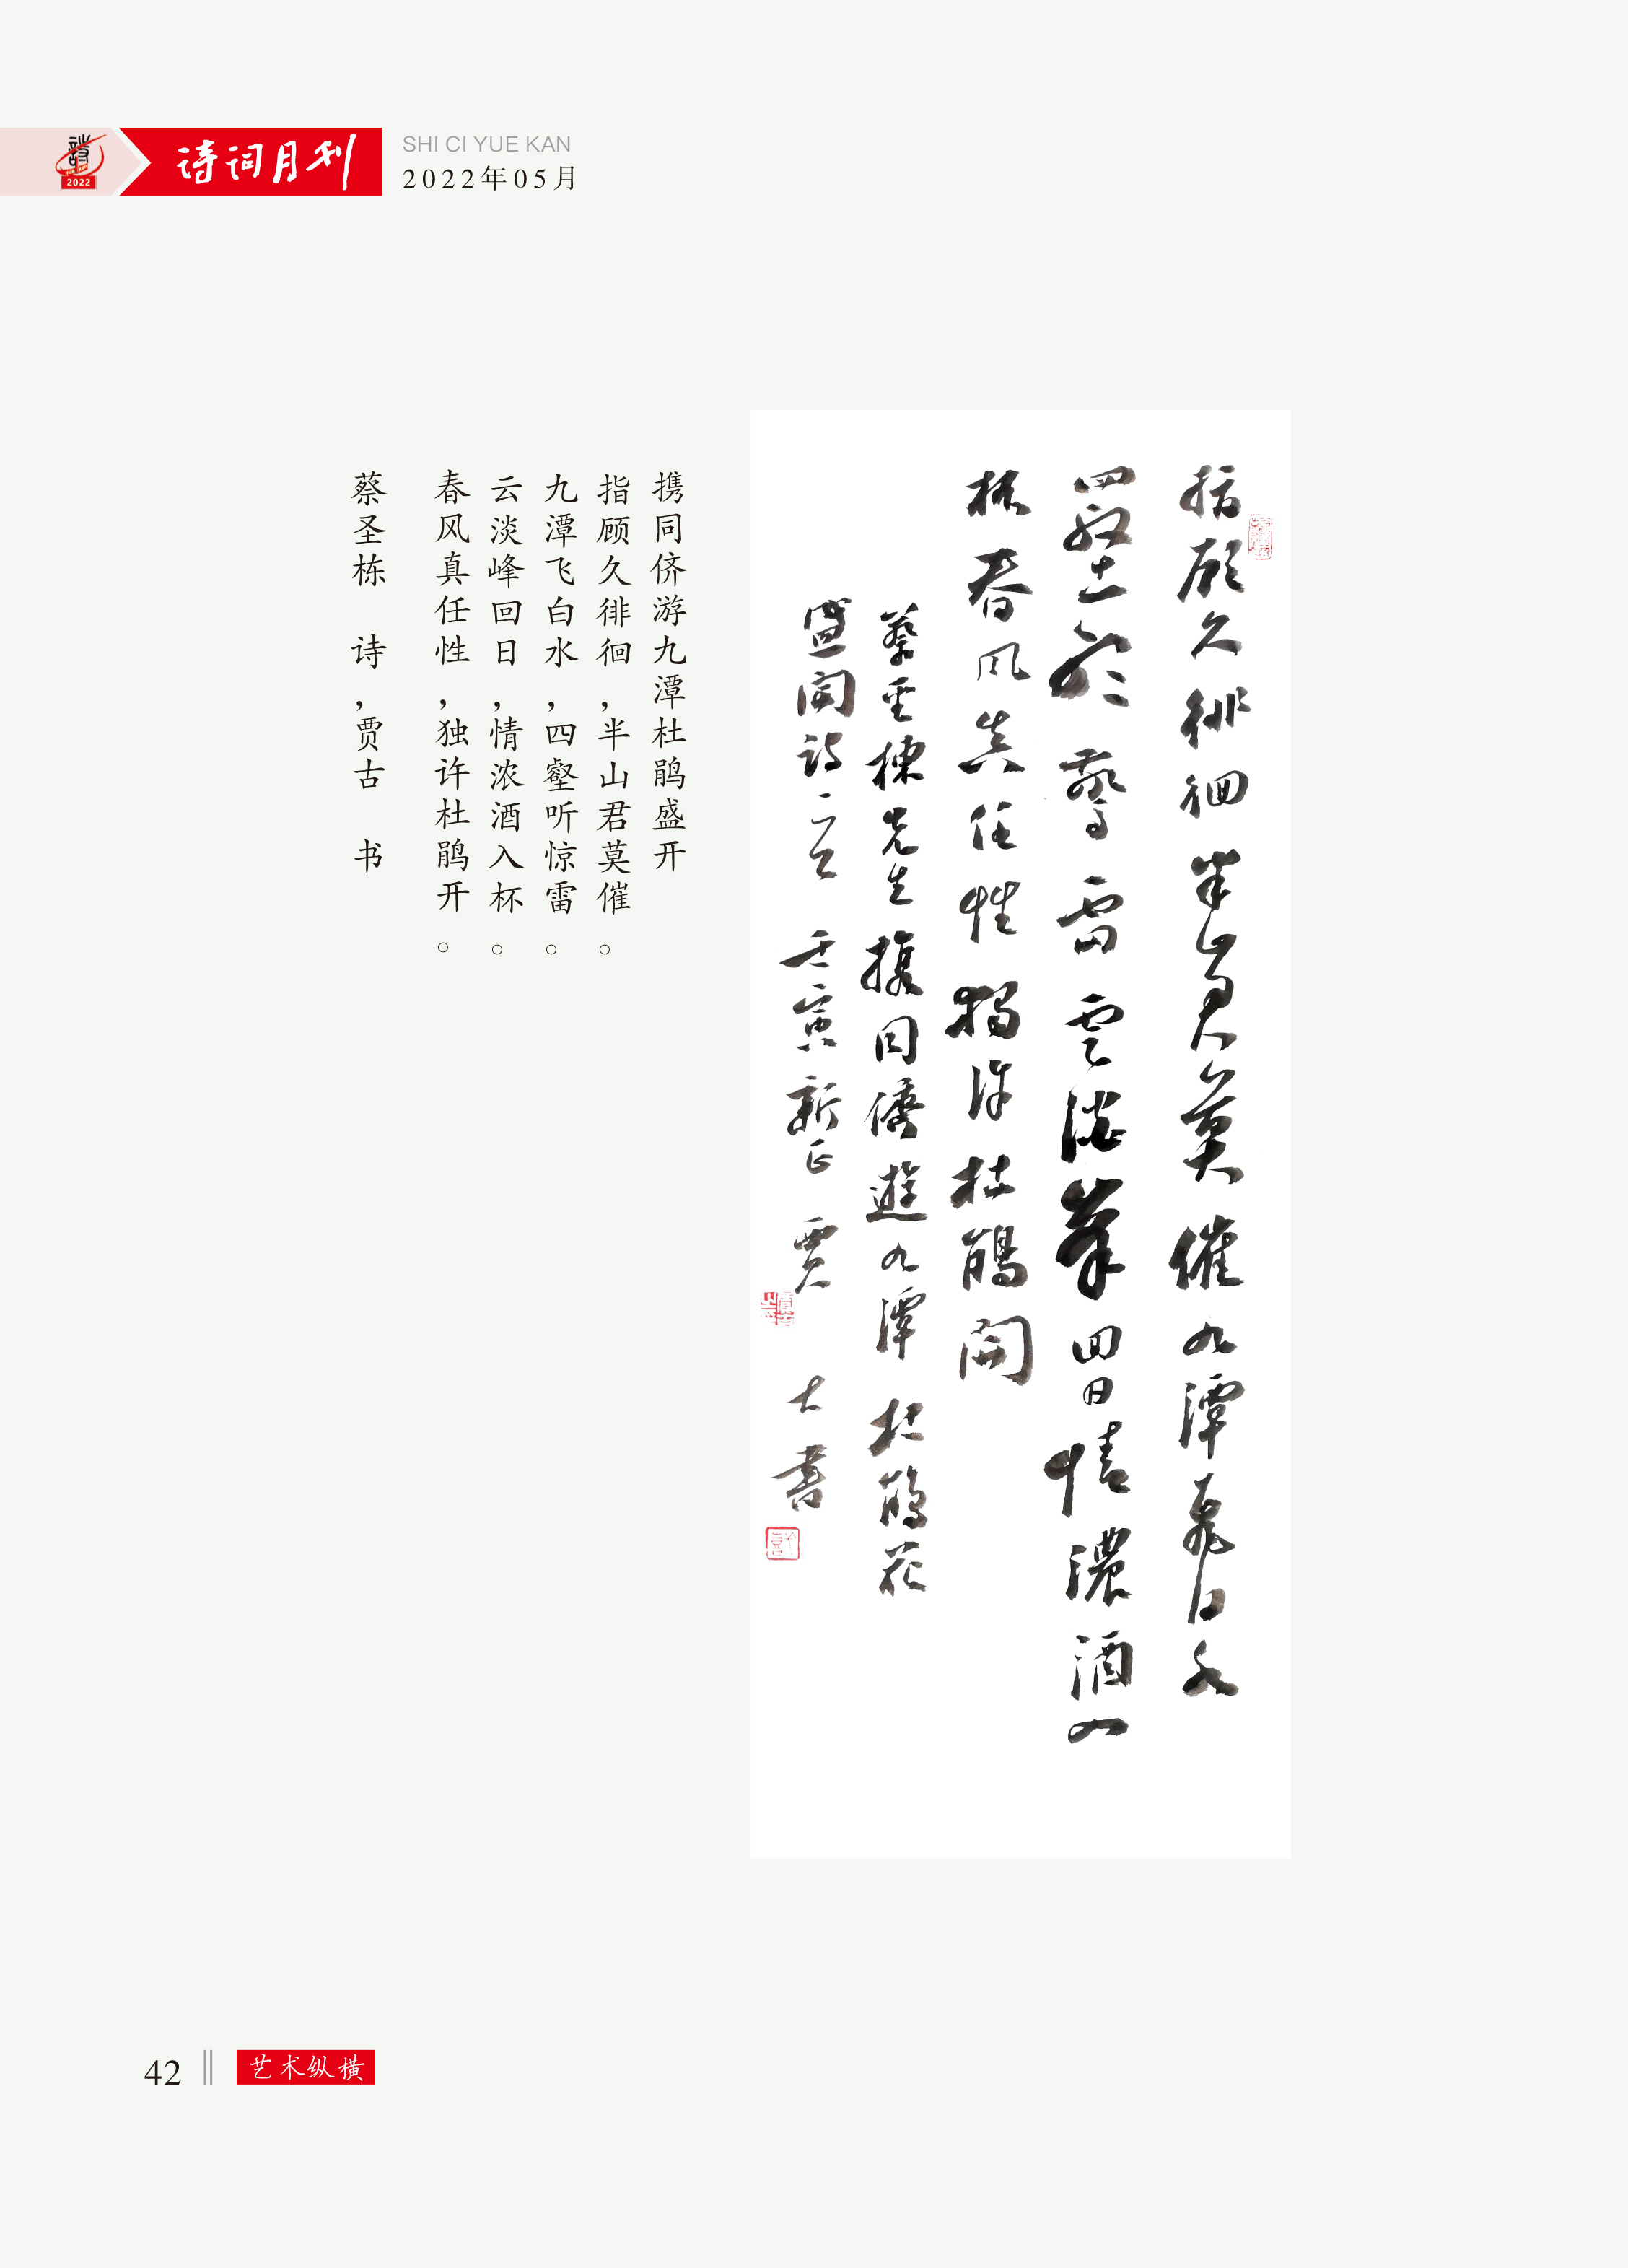 诗
2022
诗词月刊
SHI CI YUE KAN
2022年05月
指顧久徘徊半山君莫催九潭飛白水
四壑聽驚雷雲淡峯回日情濃酒入
杯春風真任性獨許杜鵑開
蔡聖棟先生攜同儕遊九潭杜鵑花
盛開詩一首壬寅新正賈古書
携同侪游九潭杜鹃盛开
指顾久徘徊，半山君莫催。
九潭飞白水，四壑听惊雷。
云淡峰回日，情浓酒入杯。
春风真任性，独许杜鹃开。
蔡圣栋 诗，贾古 书
42
艺术纵横